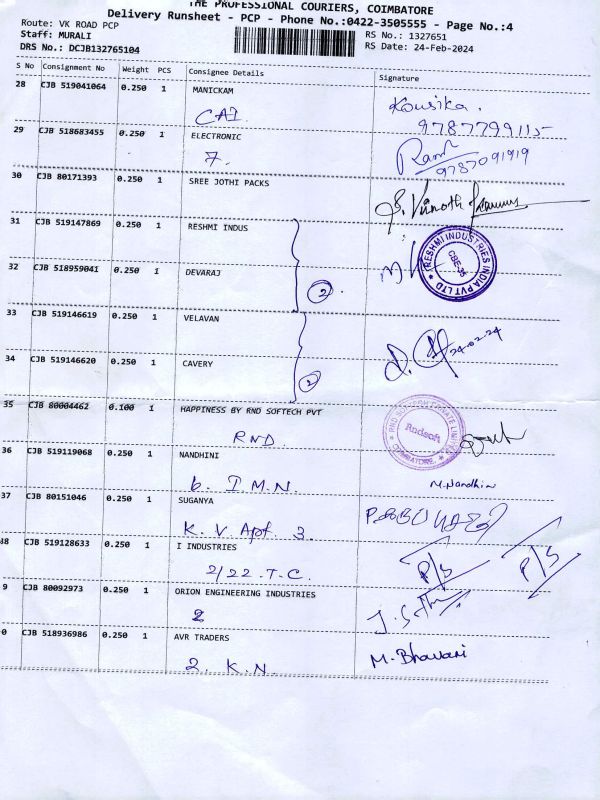 THE PROFESSIONAL COURIERS, COIMBATORE
Delivery Runsheet - PCP - Phone No.:0422-3505555 - Page No.:4
Route: VK ROAD PCP
Staff: MURALI
DRS No.: DCJB132765104
RS No.: 1327651
RS Date: 24-Feb-2024
S No Consignment No Weight PCS Consignee Details Signature
28 CJB 519041064 0.250 1 MANICKAM
CAI
Kousika.
9787799115
29 CJB 518683455 0.250 1 ELECTRONIC
7.
Ram
9787091919
30 CJB 80171393 0.250 1 SREE JOTHI PACKS
31 CJB 519147869 0.250 1 RESHMI INDUS
RESHMI INDUSTRIES INDIA PVT LTD
32 CJB 518959041 0.250 1 DEVARAJ
2
33 CJB 519146619 0.250 1 VELAVAN
24-02-24
34 CJB 519146620 0.250 1 CAVERY
2
35 CJB 80004462 0.100 1 HAPPINESS BY RND SOFTECH PVT
RND
Rndsoft
36 CJB 519119068 0.250 1 NANDHINI
6. I M.N.
M.Nandhin
37 CJB 80151046 0.250 1 SUGANYA
K. V. Apt. 3.
38 CJB 519128633 0.250 1 I INDUSTRIES
2/22 .T.C.
P/S P/S
9 CJB 80092973 0.250 1 ORION ENGINEERING INDUSTRIES
2
0 CJB 518936986 0.250 1 AVR TRADERS
2. K.N.
M.Bhavani